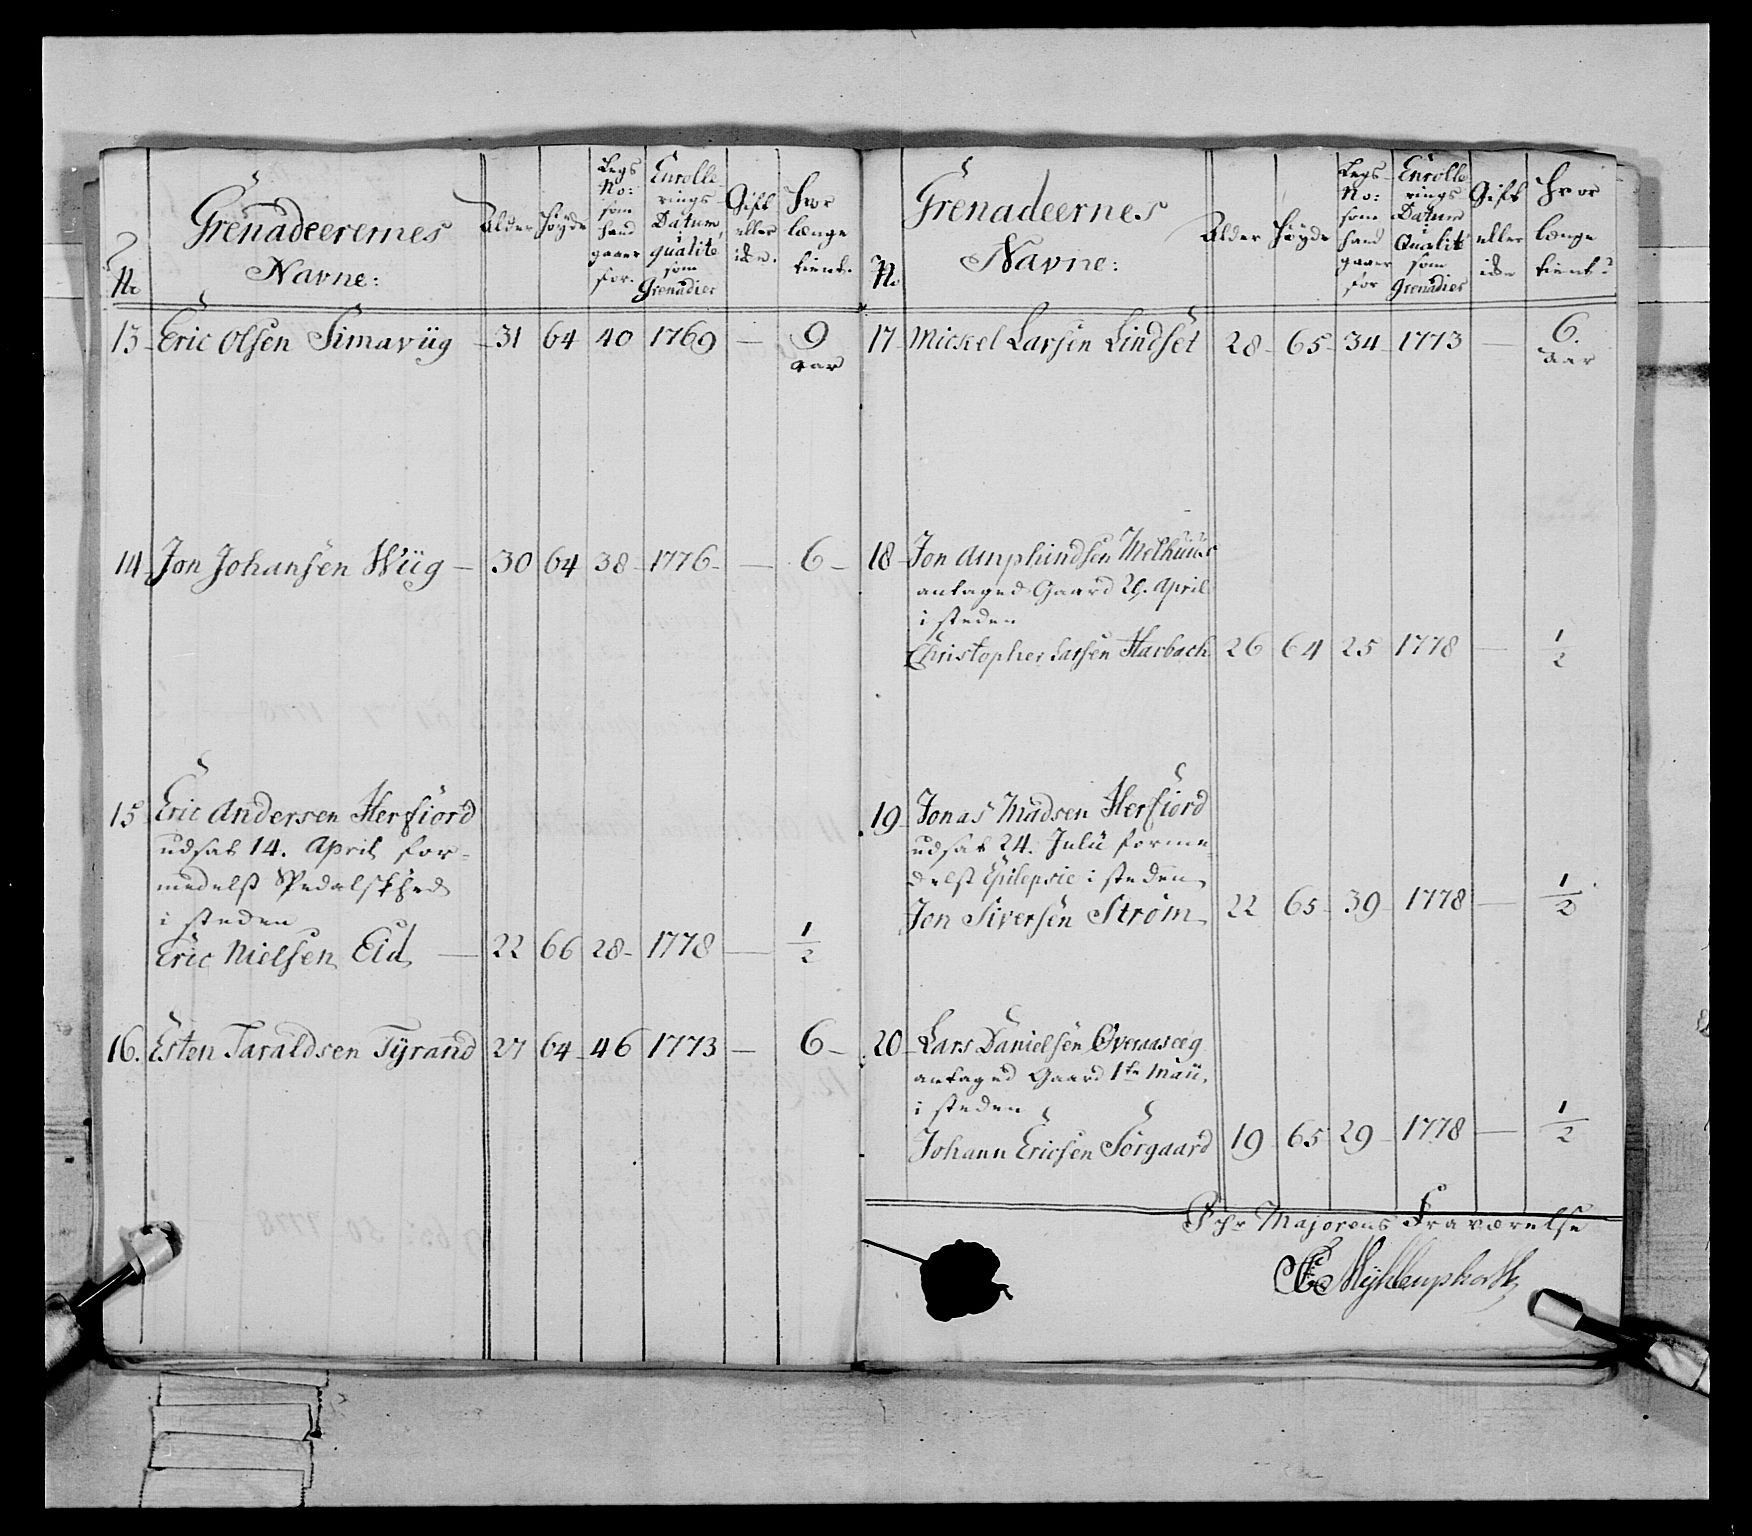 No
Grenadeerernes
Navne:
Alder
Høyde
Legs
No:
som
hand
gaaer
for.
Enrolle
rings
Datum
i
qualite
som
Grenadier
Gift
eller
ikke.
Hvor
længe
tient.
13 Eric Olsen Simavüg 31 64 40 1769 — 9
aar
14 Jon Johansen Wüg — 30 64 38 1776 — 6
15 Eric Andersen Herfiord
udsat 14. April for-
medelst Spedalskhed
i steden
Eric Nielsen Eid — 22 66 28 1778 — 1/2
16. Esten Taraldsen Tÿrand 27 64 46 1773 — 6
No
Grenadeernes
Navne:
Alder
Høyde
Legs
No:
som
hand
gaaer
for
Enrolle
rings
Datum
i
Qualite
som
Grenadier
Gift
eller
ikke
Hvor
længe
tient?
17 Mickel Larsen Lindset 28 65 34 1773 — 6.
aar
18 Jon Amphindsen Melhuus
antaged Gaard 29. April
i steden
Christopher Larsen Harbach 26 64 25 1778 — 1/2
19 Jonas Madsen Herfiord
udsat 24. Julü forme-
delst Epilepsie i steden
Jon Siversen Strøm 22 65 39 1778 — 1/2
20 Lars Danielsen Overaaseeg
antaged Gaard 1te Maü.
i steden
Johann Ericsen Sørgaard 19 65 29 1778 — 1/2
Hr Majorens Fraværelse